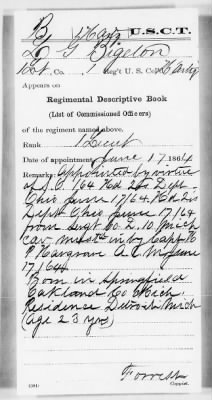 B 1 Hav'y U.S.C.T.
L G Bigelon
1st, Co. 1 Reg't U. S. Col H Artig
Appears on
Regimental Descriptive Book
(List of Commissioned Officers)
of the regiment named above.
Rank 1 Lieut
Date of appointment June 17 1864
Remarks: Appointed by virtue
of S.O. /64 Hd Qrs Dept.
Ohio June 17/64. Hd Qrs
Dept Ohio June 17/64
from Sergt Co L, 10 Mich
Cav must'd in by Capt H
P Hargrove A C M June
17/64
Born in Springfield
Oakland Co Mich
Residence Detroit Mich
(age 23 yrs)
Forrest
Copyist.